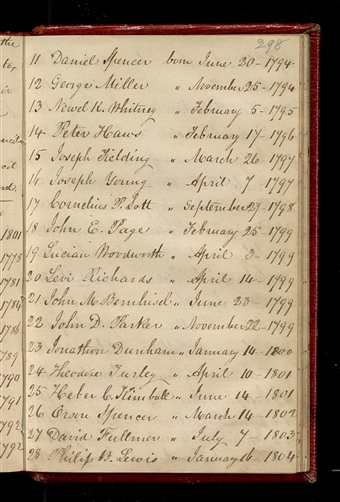 298
11 Daniel Spencer born June 20 - 1794
12 George Miller " November 25 - 1794
13 Newel K. Whitney " February 5 - 1795
14 Peter Haws " February 17 - 1796
15 Joseph Fielding " March 26 - 1797
16 Joseph Young " April 7 - 1797
17 Cornelius P. Lott " September 27 - 1798
18 John E. Page " February 25 - 1799
19 Lucian Woodworth " April 3 - 1799
20 Levi Richards " April 14 - 1799
21 John M. Bernhisel " June 23 - 1799
22 John D. Parker " November 22 - 1799
23 Jonathan Dunham " January 14 - 1800
24 Theodore Turley " April 10 - 1801
25 Heber C. Kimball " June 14 - 1801
26 Orson Spencer " March 14 - 1802
27 David Fullmer " July 7 - 1803
28 Philip B. Lewis " January 16 - 1804